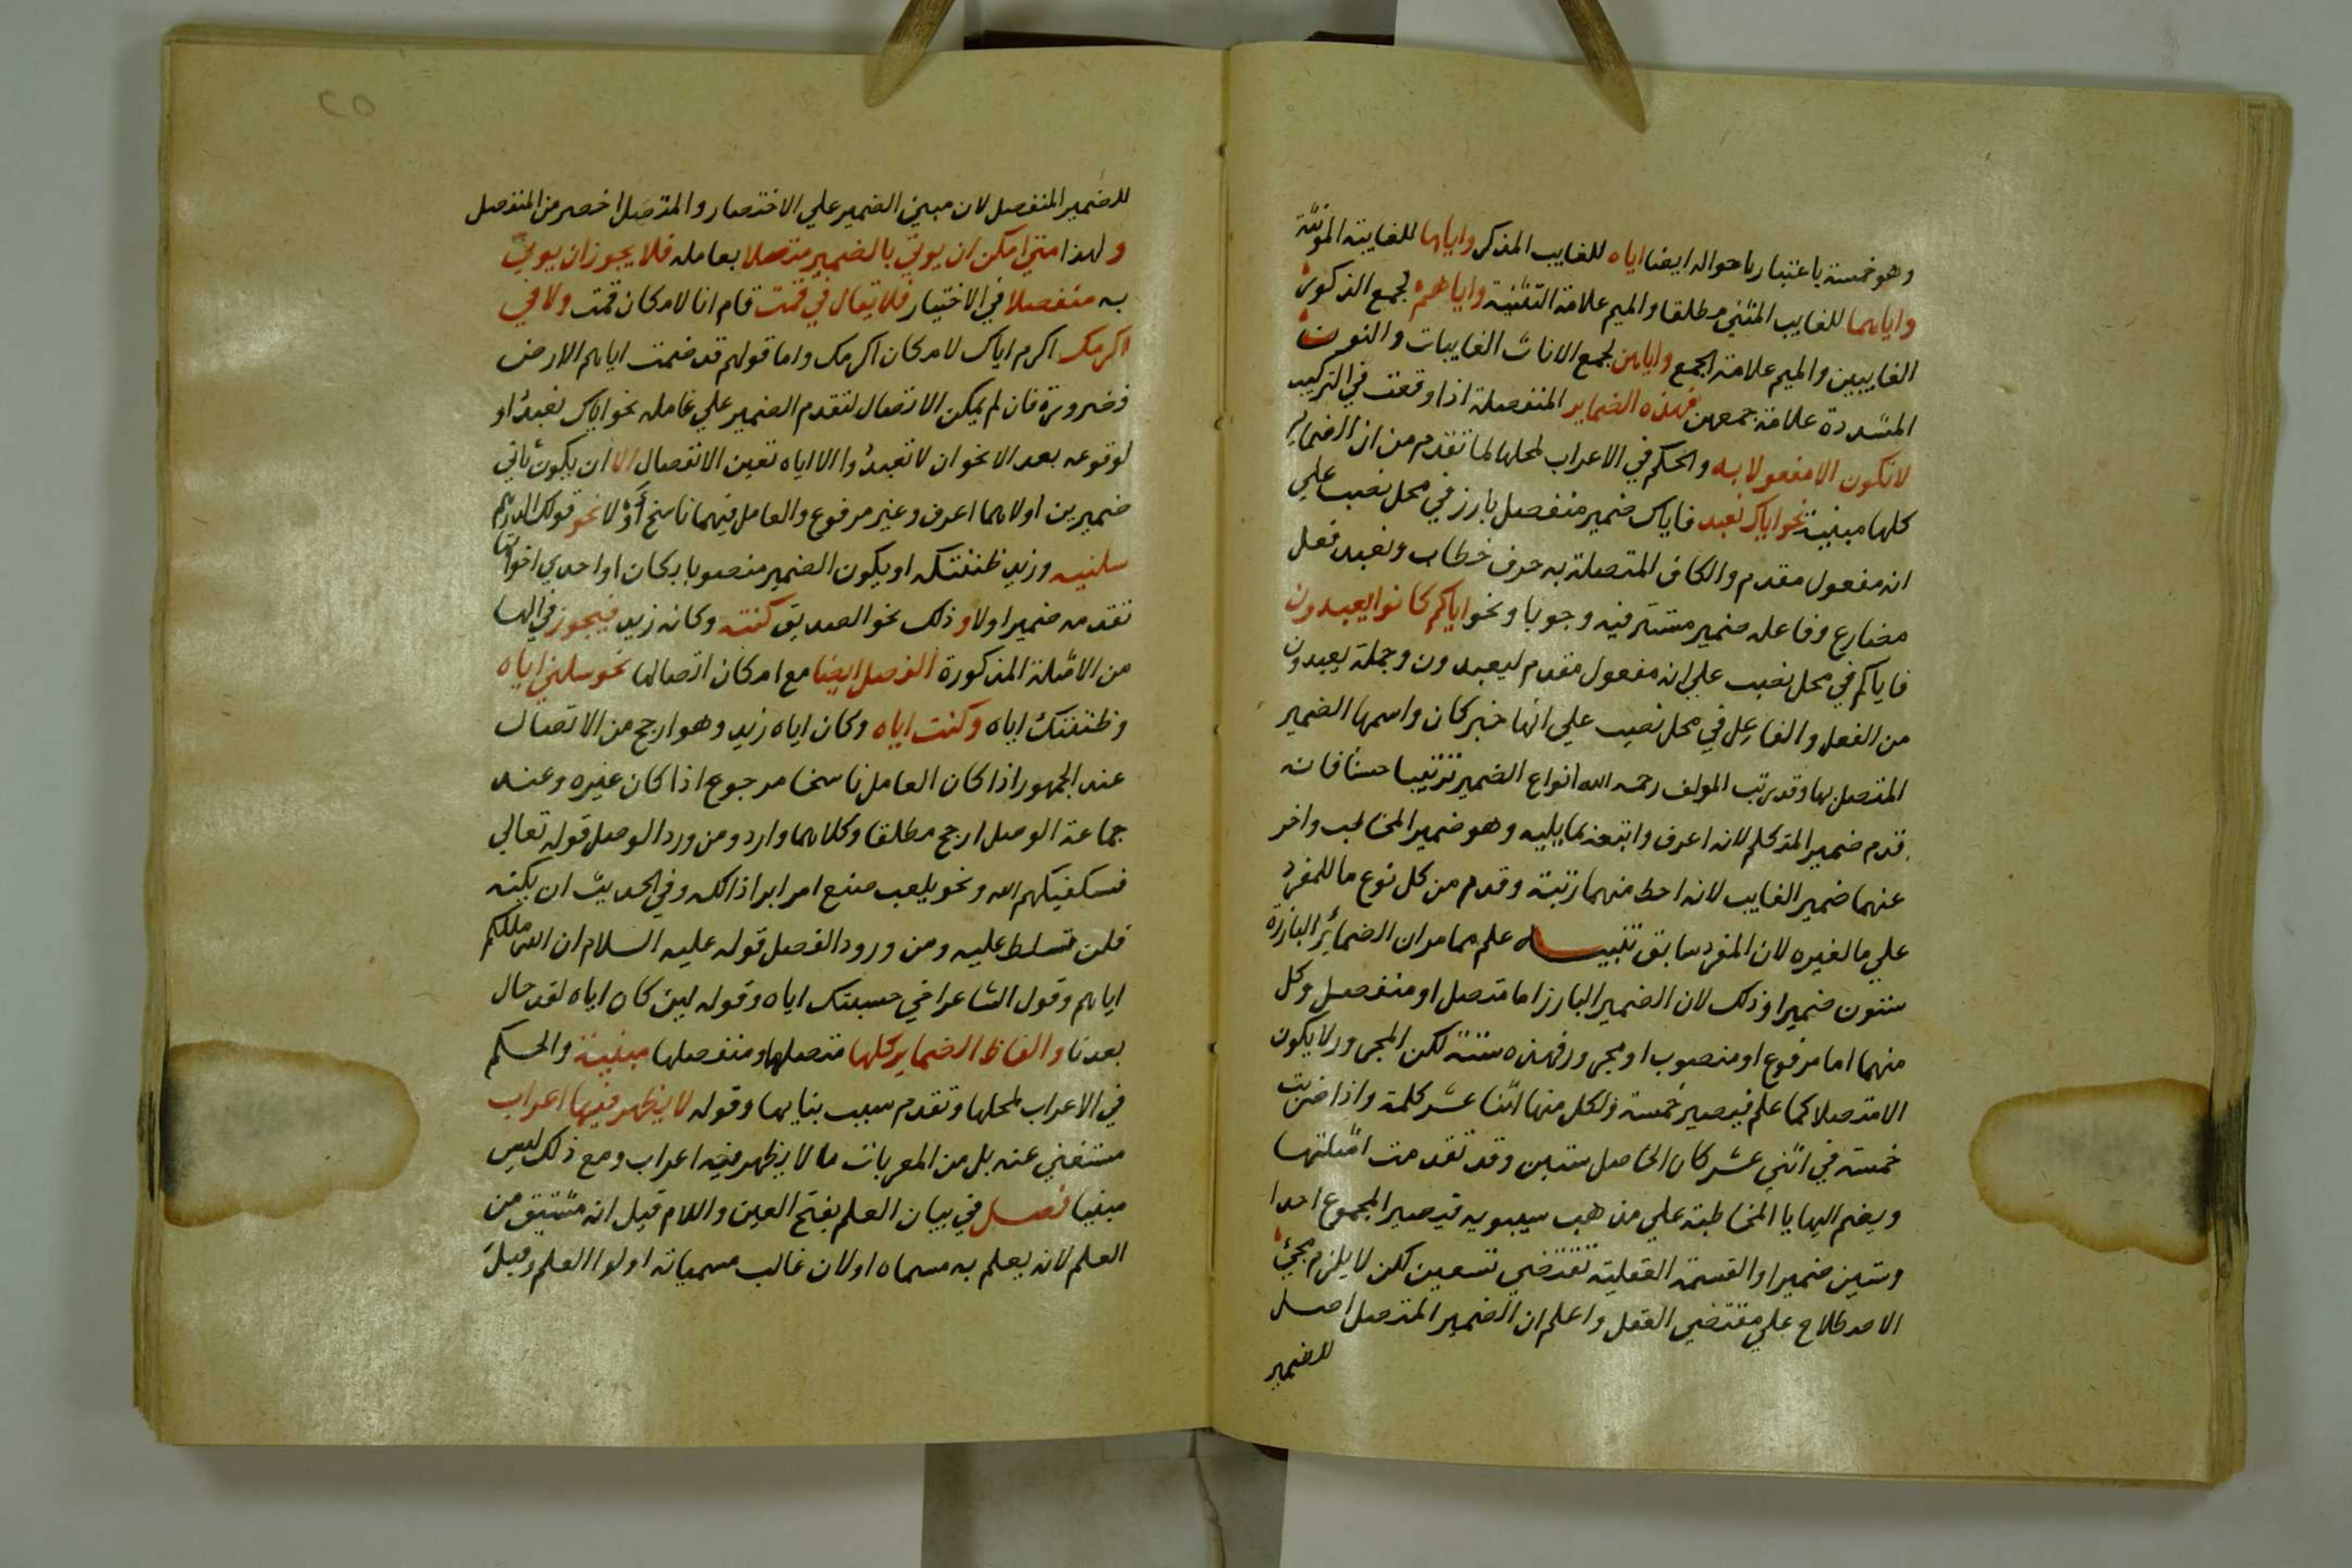 وهو خمسة باعتبار باحواله ايضا اياه للغايب المذكر واياها للغايبة المونثة
واياهما للغايب المثني مطلقا والميم علامة التثنية واياهم لجمع الذكور
الغايبين والميم علامة الجمع واياهن لجمع الاناث الغايبات والنون
المشددة علامة جمعهن فهذه الضماير المنفصلة اذا وقعت في التركيب
لا تكون الا مفعولا به والحكم في الاعراب لمحلها لما تقدم من ان الضماير
كلها مبنية نحو اياك نعبد فاياك ضمير منفصل بارز في محل نصب علي
انه مفعول مقدم والكاف المتصلة به حرف خطاب ونعبد فعل
مضارع وفاعله ضمير مستتر فيه وجوبا ونحو اياكم كانوا يعبدون
فاياكم في محل نصب علي انه مفعول مقدم ليعبدون وجملة يعبدون
من الفعل والفاعل في محل نصب علي انها خبر كان واسمها الضمير
المتصل بها وقد رتب المولف رحمه الله انواع الضمير ترتيبا حسنا فانه
قدم ضمير المتكلم لانه اعرف واتبعه بما يليه وهو ضمير المخاطب واخر
عنهما ضمير الغايب لانه احط منهما رتبة وقدم من كل نوع ما للمفرد
علي ما لغيره لان المفرد سابق تنبيه علم مما مر ان الضمائر البارزة
ستون ضميرا وذلك لان الضمير البارز اما متصل او منفصل وكل
منهما اما مرفوع او منصوب او مجرور فهذه ستة لكن المجرور لا يكون
الا متصلا كما علم فيصير خمسة ولكل منها اثنا عشر كلمة واذا ضربت
خمسة في اثني عشر كان الحاصل ستين وقد تقدمت امثلتها
ويضم اليها يا المخاطبة علي مذهب سيبويه فيصير المجموع احدا
وستين ضميرا والقسمة العقلية تقتضي تسعين لكن لا يلزم مجيء
الاصطلاح علي مقتضي العقل واعلم ان الضمير المتصل اصل
للضمير
للضمير المنفصل لان مبني الضمير علي الاختصار والمتصل اخصر من المنفصل
ولهذا متي امكن ان يوتي بالضمير متصلا بعامله فلا يجوز ان يوتي
به منفصلا في الاختيار فلا يقال في قمت قام انا لامكان قمت ولا في
اكرمك اكرم اياك لامكان اكرمك واما قولهم قد ضمنت اياهم الارض
فضرورة فان لم يمكن الاتصال لتقدم الضمير علي عامله نحو اياك نعبد او
لوقوعه بعد الا نحو ان لا تعبدوا الا اياه تعين الانفصال الا ان يكون ثاني
ضميرين اولاهما اعرف وغير مرفوع والعامل فيهما ناسخ أوْ لا نحو قولك الدرهم
سلنيه وزيد ظننتكه او يكون الضمير منصوبا بكان او احدي اخواتها
تقدمه ضمير اولا وذلك نحو الصديق كنته وكانه زيد فيجوز في الها
من الامثلة المذكورة الفصل ايضا مع امكان اتصالها نحو سلني اياه
وظننتك اياه وكنت اياه وكان اياه زيد وهو ارجح من الاتصال
عند الجمهور اذا كان العامل ناسخا مرجوع اذا كان غيره وعند
جماعة الوصل ارجح مطلقا وكلاهما وارد ومن ورد الوصل قوله تعالي
فسيكفيكهم الله ونحو يلعب امرا براذاكه وفي الحديث ان يكنه
فلن تسلط عليه ومن ورود الفصل قوله عليه السلام ان الله ملككم
اياهم وقول الشاعر اخي حسبتك اياه وقوله لين كان اياه لقد حال
بعدنا والفاظ الضماير كلها متصلها ومنفصلها مبنية والحكم
في الاعراب لمحلها وتقدم سبب بنايها وقوله لا يظهر فيها اعراب
مستغني عنه بل من المعربات ما لا يظهر فيه اعراب ومع ذلك ليس
مبنيا فصل في بيان العلم بفتح العين واللام قيل انه مشتق من
العلم لانه يعلم به مسماه او لان غالب مسمياته اولوا العلم وقيل